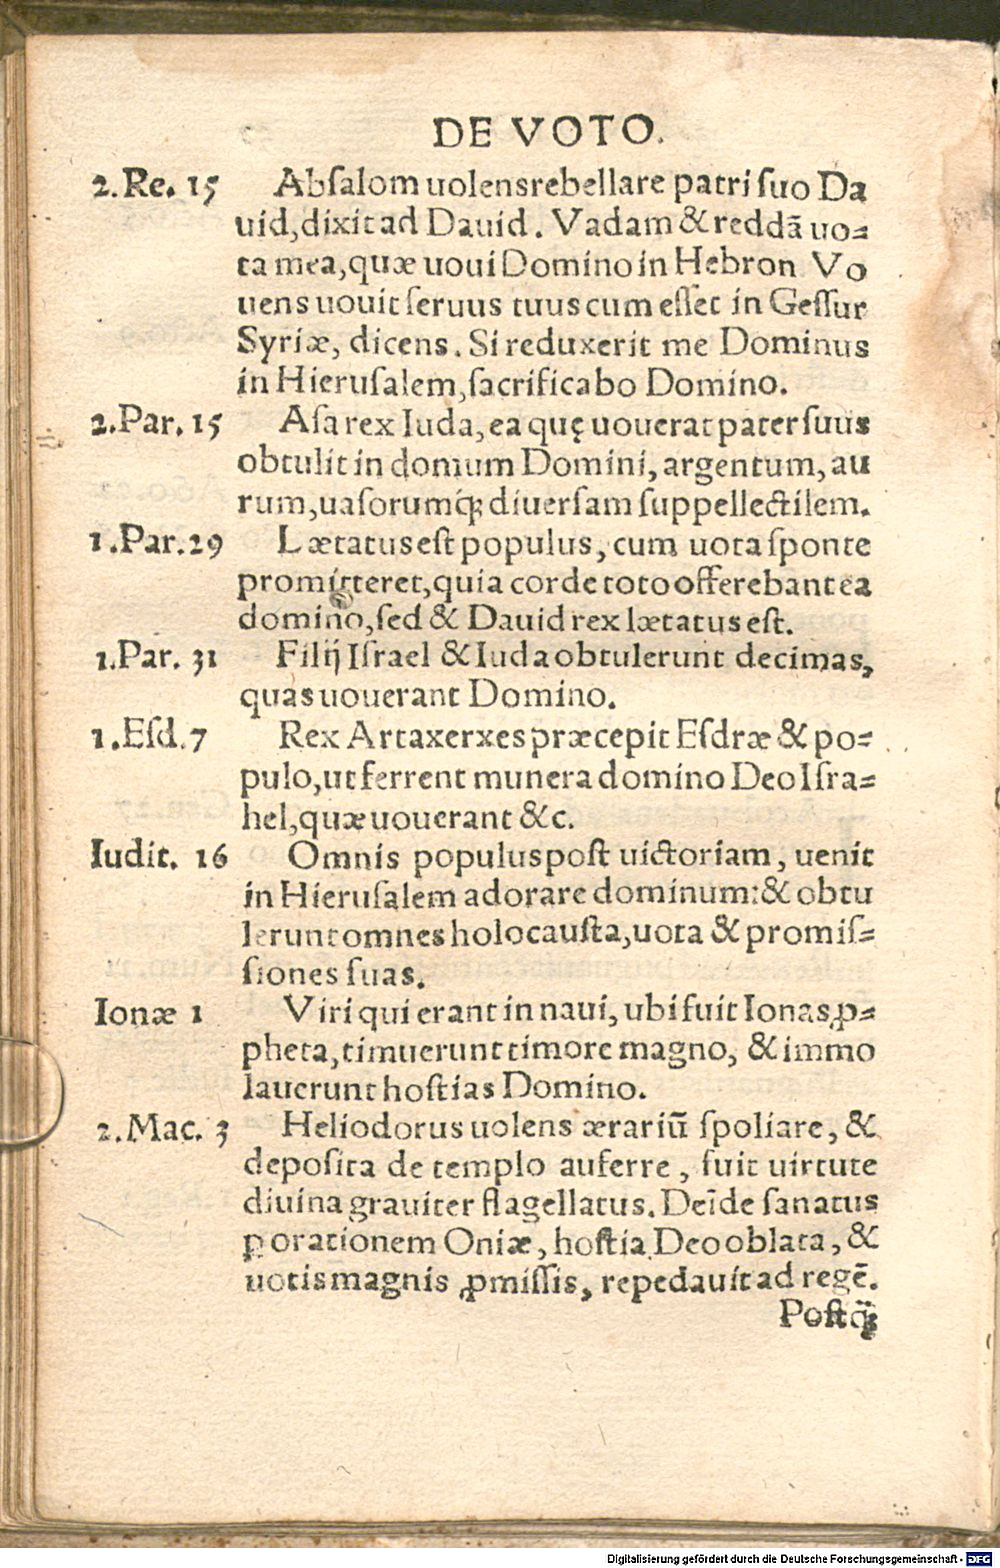 DE VOTO.
2.Re. 15 Absalom uolens rebellare patri suo Da
uid, dixit ad Dauid. Vadam & reddā uo=
ta mea, quæ uoui Domino in Hebron Vo
uens uouit seruus tuus cum esset in Gessur
Syriæ, dicens. Si reduxerit me Dominus
in Hierusalem, sacrificabo Domino.
2.Par. 15 Asa rex Iuda, ea quę uouerat pater suus
obtulit in domum Domini, argentum, au
rum, uasorumq́; diuersam suppellectilem.
1.Par. 29 Lætatus est populus, cum uota sponte
promitteret, quia corde toto offerebant ea
domino, sed & Dauid rex lætatus est.
1.Par. 31 Filij Israel & Iuda obtulerunt decimas,
quas uouerant Domino.
1.Esd. 7 Rex Artaxerxes præcepit Esdræ & po=
pulo, ut ferrent munera domino Deo Isra=
hel, quæ uouerant &c.
Iudit. 16 Omnis populus post uictoriam, uenit
in Hierusalem adorare dominum: & obtu
lerunt omnes holocausta, uota & promis=
siones suas.
Ionæ 1 Viri qui erant in naui, ubi fuit Ionas ꝓ=
pheta, timuerunt timore magno, & immo
lauerunt hostias Domino.
2.Mac. 3 Heliodorus uolens ærariū spoliare, &
deposita de templo auferre, fuit uirtute
diuina grauiter flagellatus. Deīde sanatus
ꝑ orationem Oniæ, hostia Deo oblata, &
uotis magnis ꝓmissis, repedauit ad regē.
Postq̃;
Digitalisierung gefördert durch die Deutsche Forschungsgemeinschaft - DFG